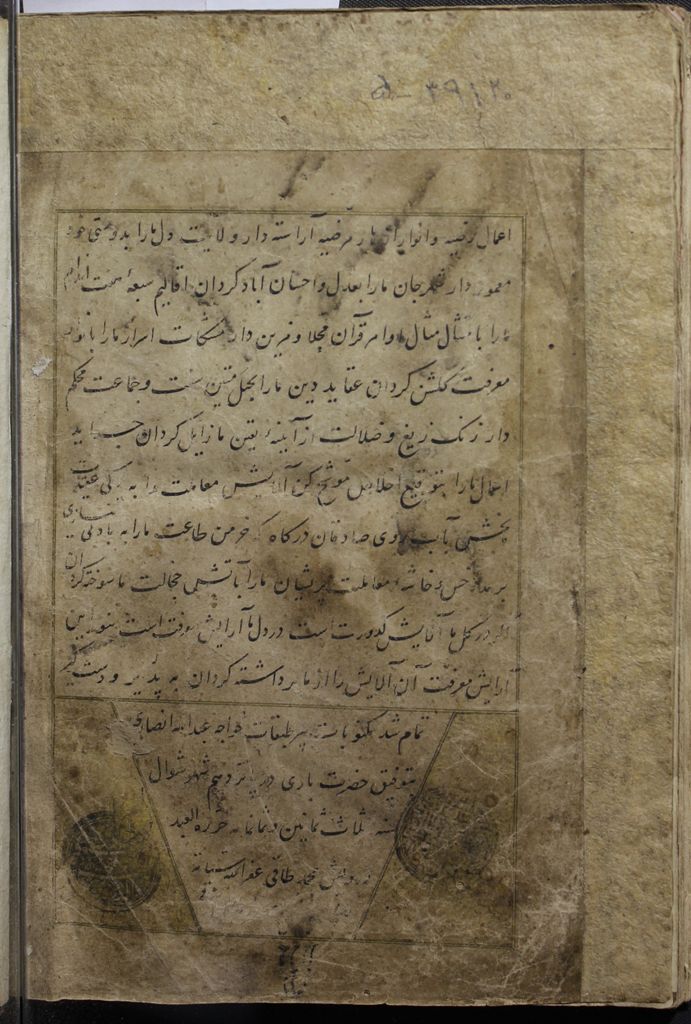 اعمال رضیه و انوار مرضیه آراسته دار ولایت دل مارا بدوستی خود
معمور دار شهر جان مارا بعدل و احسان آباد کردان اقالیم سبعهٔ هفت اندام
مارا بامتثال مثال اوامر قرآن محلا و مزین دار مشکات اسرار مارا بانوار
معرفت کلشن کردان عقاید دین مارا بحبل متین سنت و جماعت محکم
دار زنک زیغ و ضلالت از آینهٔ یقین ما زایل کردان جراید
اعمال مارا بتوقیع اخلاص موشح کن آلایش معاملت مارا به پاکی عنایت
بخش بآب روی صادقان درکاه که خرمن طاعت مارا به باد بی نیازی
بر مده خس و خاشاک معاملت پریشان مارا بآتش خجالت سوخته کردان
اکر در کل ما آلایش کدورت است در دل ما آرایش معرفت است بنور این
آرایش معرفت آن آلایش را از ما برداشته کردان به پذیر و دست کیر
تمام شد طبقات خواجه عبدالله انصاری
بتوفیق حضرت باری در پانزدهم شهر شوال
سنه ثلاث ثمانین و ثمانمایه حرره العبد
درویش محمد طاقی عفی الله
۳۹۱۲۰